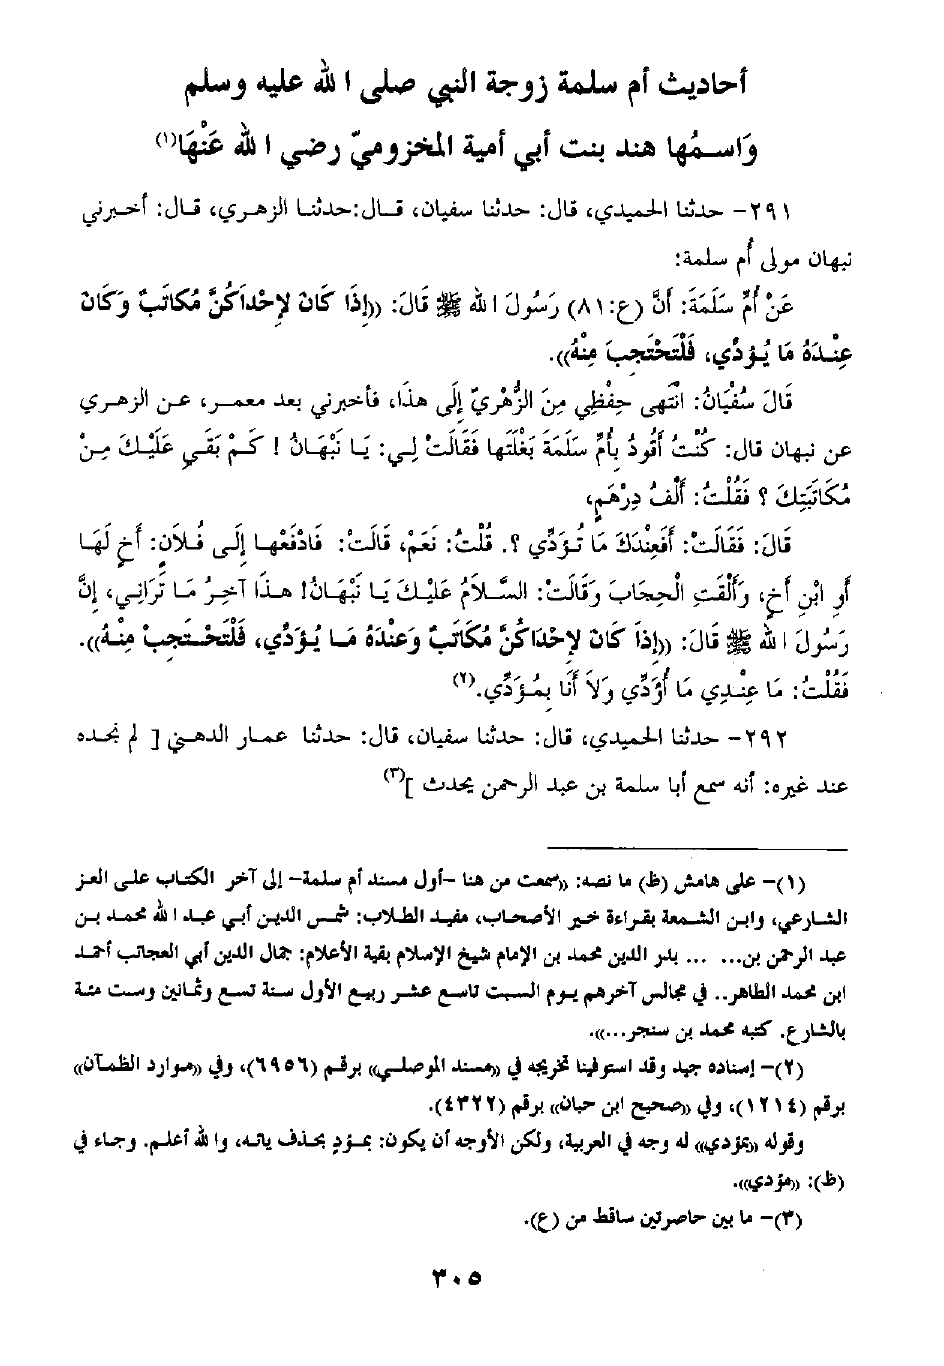 أحاديث أم سلمة زوجة النبي صلى الله عليه وسلم
وَاسمُها هند بنت أبي أمية المخزوميّ رضي الله عَنْهَا(١)
٢٩١- حدثنا الحميدي، قال: حدثنا سفيان، قال:حدثنا الزهري، قال: أخبرني
نبهان مولى أم سلمة:
عَنْ أُمِّ سَلَمَةَ: أنَّ (ع:٨١) رَسُولَ الله ﷺ قَالَ: ((إِذَا كَانَ لإِحْدَاكُنَّ مُكَاتَبٌ وَكَانَ
عِنْدَهُ مَا يُؤدِّي، فَلْتَحْتَجِبَ مِنْهُ)).
قَالَ سُفْيَانُ: انْتَهى حِفْظِي مِنَ الزُّهْرِيّ إِلَى هذَا، فأخبرني بعد معمر، عن الزهري
عن نبهان قال: كُنْتُ أقُودُ بأُمِّ سَلَمَةَ بَغْلَتَها فَقَالَتْ لِي: يَا نَبْهَانُ ! كَمْ بَقي عَلَيْكَ مِنْ
مُكَاتَبَتِكَ ؟ فَقُلْتُ: أَلْفُ دِرْهَمٍ،
قَالَ: فَقَالَتْ: أَفَعِنْدَكَ مَا تُؤدِّي ؟. قُلْتُ: نَعَمْ، قَالَتْ: فَادْفَعْهَا إِلَى فُلاَنٍ: أَخٍ لَهَا
أَوِ ابْنِ أَخٍ، وَأَلْقَتِ الْحِجَابَ وَقَالَتْ: السَّلاَمُ عَلَيْكَ يَا نَبْهَانُ! هذَا آخِرُ مَا تَرَانِي، إنَّ
رَسُولَ الله ﷺ قَالَ: ((إِذَا كَانَ لإِحْدَاكُنَّ مُكَاتَبٌ وَعِنْدَهُ مَا يُؤَدِّي، فَلْتَحْتَجِبْ مِنْهُ)).
فَقُلْتُ: مَا عِنْدِي مَا أُؤَدِّي وَلاَ أَنَا بِمُؤَدِّي.(٢)
٢٩٢- حدثنا الحميدي، قال: حدثنا سفيان، قال: حدثنا عمار الدهني [ لم نجده
عند غيره: أنه سمع أبا سلمة بن عبد الرحمن يحدث ](٣)
(١)- على هامش (ظ) ما نصه: ((سمعت من هنا -أول مسند أم سلمة- إلى آخر الكتاب على العز
الشارعي، وابن الشمعة بقراءة خير الأصحاب، مفيد الطلاب: شمس الدين أبي عبد الله محمد بن
عبد الرحمن بن... ... بدر الدين محمد بن الإمام شيخ الإسلام بقية الأعلام: جمال الدين أبي العجائب أحمد
ابن محمد الطاهر.. في مجالس آخرهم يوم السبت تاسع عشر ربيع الأول سنة تسع وثمانين وست مئة
بالشارع. كتبه محمد بن سنجر...)).
(٢)- إسناده جيد وقد استوفينا تخريجه في ((مسند الموصلي)) برقم (٦٩٥٦)، وفي ((موارد الظمآن))
برقم (١٢١٤)، وفي ((صحيح ابن حبان)) برقم (٤٣٢٢).
وقوله ((بمؤدي)) له وجه في العربية، ولكن الأوجه أن يكون: بمؤدٍ بحذف يائه، والله أعلم. وجاء في
(ظ): ((مؤدي)).
(٣)- ما بين حاصرتين ساقط من (ع).
٣٠٥